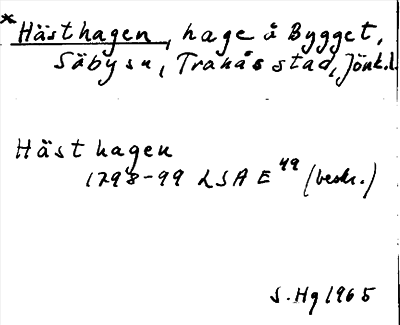 *Hästhagen, hage å Bygget,
Säby sn, Tranås stad, Jönk.l.
Hästhagen
1798-99 LSA E 49 (beskr.)
S.Hg 1965